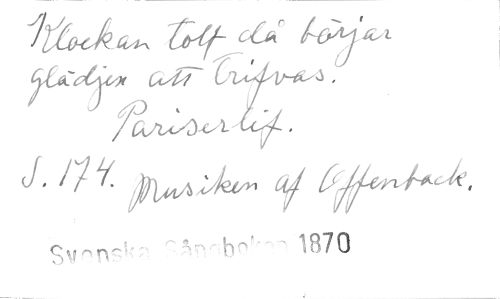 Klockan tolf då börjar
glädjen att trifvas.
Pariserlif.
S. 174. Musiken af Offenback.
Svenska Sångboken 1870